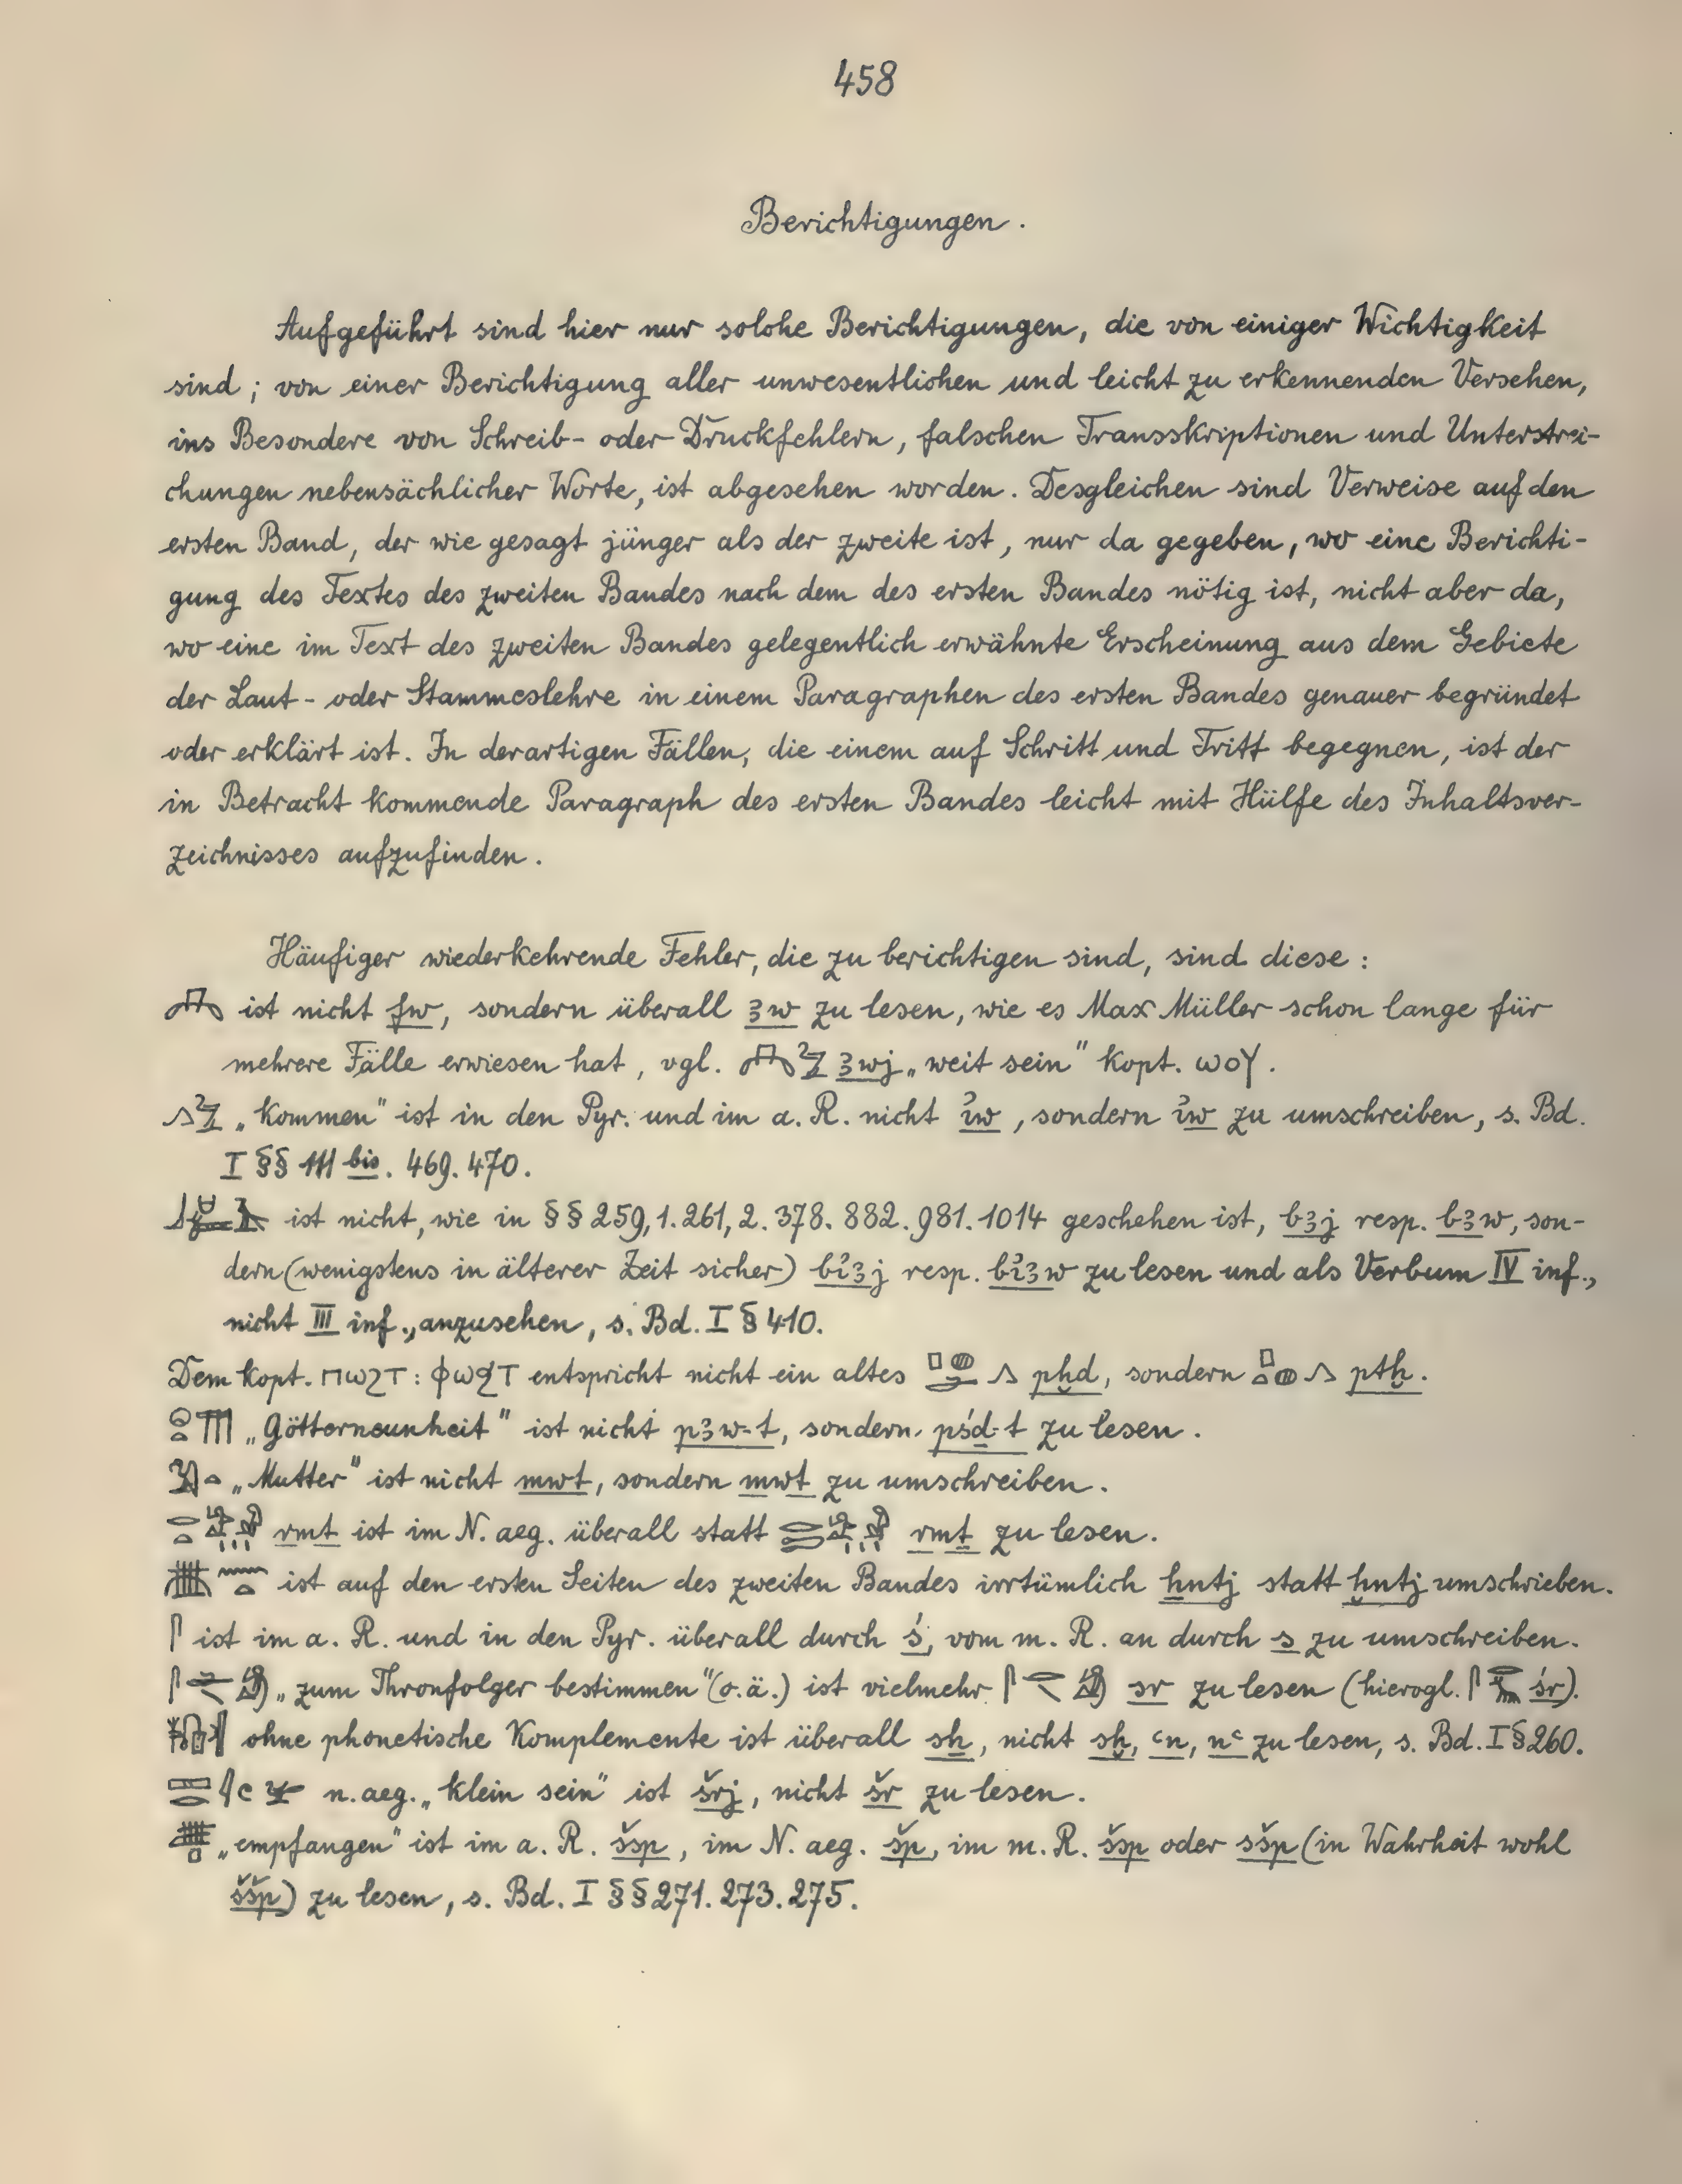 458
Berichtigungen.
Aufgeführt sind hier nur solche Berichtigungen, die von einiger Wichtigkeit
sind; von einer Berichtigung aller unwesentlichen und leicht zu erkennenden Versehen,
ins Besondere von Schreib- oder Druckfehlern, falschen Transskriptionen und Unterstrei-
chungen nebensächlicher Worte, ist abgesehen worden. Desgleichen sind Verweise auf den
ersten Band, der wie gesagt jünger als der zweite ist, nur da gegeben, wo eine Berichti-
gung des Textes des zweiten Bandes nach dem des ersten Bandes nötig ist, nicht aber da,
wo eine im Text des zweiten Bandes gelegentlich erwähnte Erscheinung aus dem Gebiete
der Laut- oder Stammeslehre in einem Paragraphen des ersten Bandes genauer begründet
oder erklärt ist. In derartigen Fällen, die einem auf Schritt und Tritt begegnen, ist der
in Betracht kommende Paragraph des ersten Bandes leicht mit Hülfe des Inhaltsver-
zeichnisses aufzufinden.
Häufiger wiederkehrende Fehler, die zu berichtigen sind, sind diese:
ist nicht fw, sondern überall ꜣw zu lesen, wie es Max Müller schon lange für
mehrere Fälle erwiesen hat, vgl. ꜣwj „weit sein" kopt. ⲱⲟⲩ.
„kommen" ist in den Pyr. und im a. R. nicht , sondern zu umschreiben, s. Bd.
I §§ 111 bis. 469. 470.
ist nicht, wie in §§ 259,1. 261,2. 378. 882. 981. 1014 geschehen ist, bꜣj resp. bꜣw, son-
dern (wenigstens in älterer Zeit sicher) bỉꜣj resp. bỉꜣw zu lesen und als Verbum IV inf.,
nicht III inf., anzusehen, s. Bd. I § 410.
Dem kopt. ⲡⲱϩⲧ : ⲫⲱϧⲧ entspricht nicht ein altes pḫd, sondern ptḫ.
„Götterneunheit" ist nicht pꜣw-t, sondern pśḏ-t zu lesen.
„Mutter" ist nicht mwt, sondern mwt zu umschreiben.
rmt ist im N. aeg. überall statt rmṯ zu lesen.
ist auf den ersten Seiten des zweiten Bandes irrtümlich hntj statt ḫntj umschrieben.
ist im a. R. und in den Pyr. überall durch ś, vom m. R. an durch s zu umschreiben.
„zum Thronfolger bestimmen" (o.ä.) ist vielmehr sr zu lesen (hierogl. śr).
ohne phonetische Komplemente ist überall sẖ, nicht sḫ, ꜥn, nꜥ zu lesen, s. Bd. I § 260.
n. aeg. „klein sein" ist šrj, nicht šr zu lesen.
„empfangen" ist im a. R. šsp, im N. aeg. šp, im m. R. šsp oder sšp (in Wahrheit wohl
ššp) zu lesen, s. Bd. I §§ 271. 273. 275.